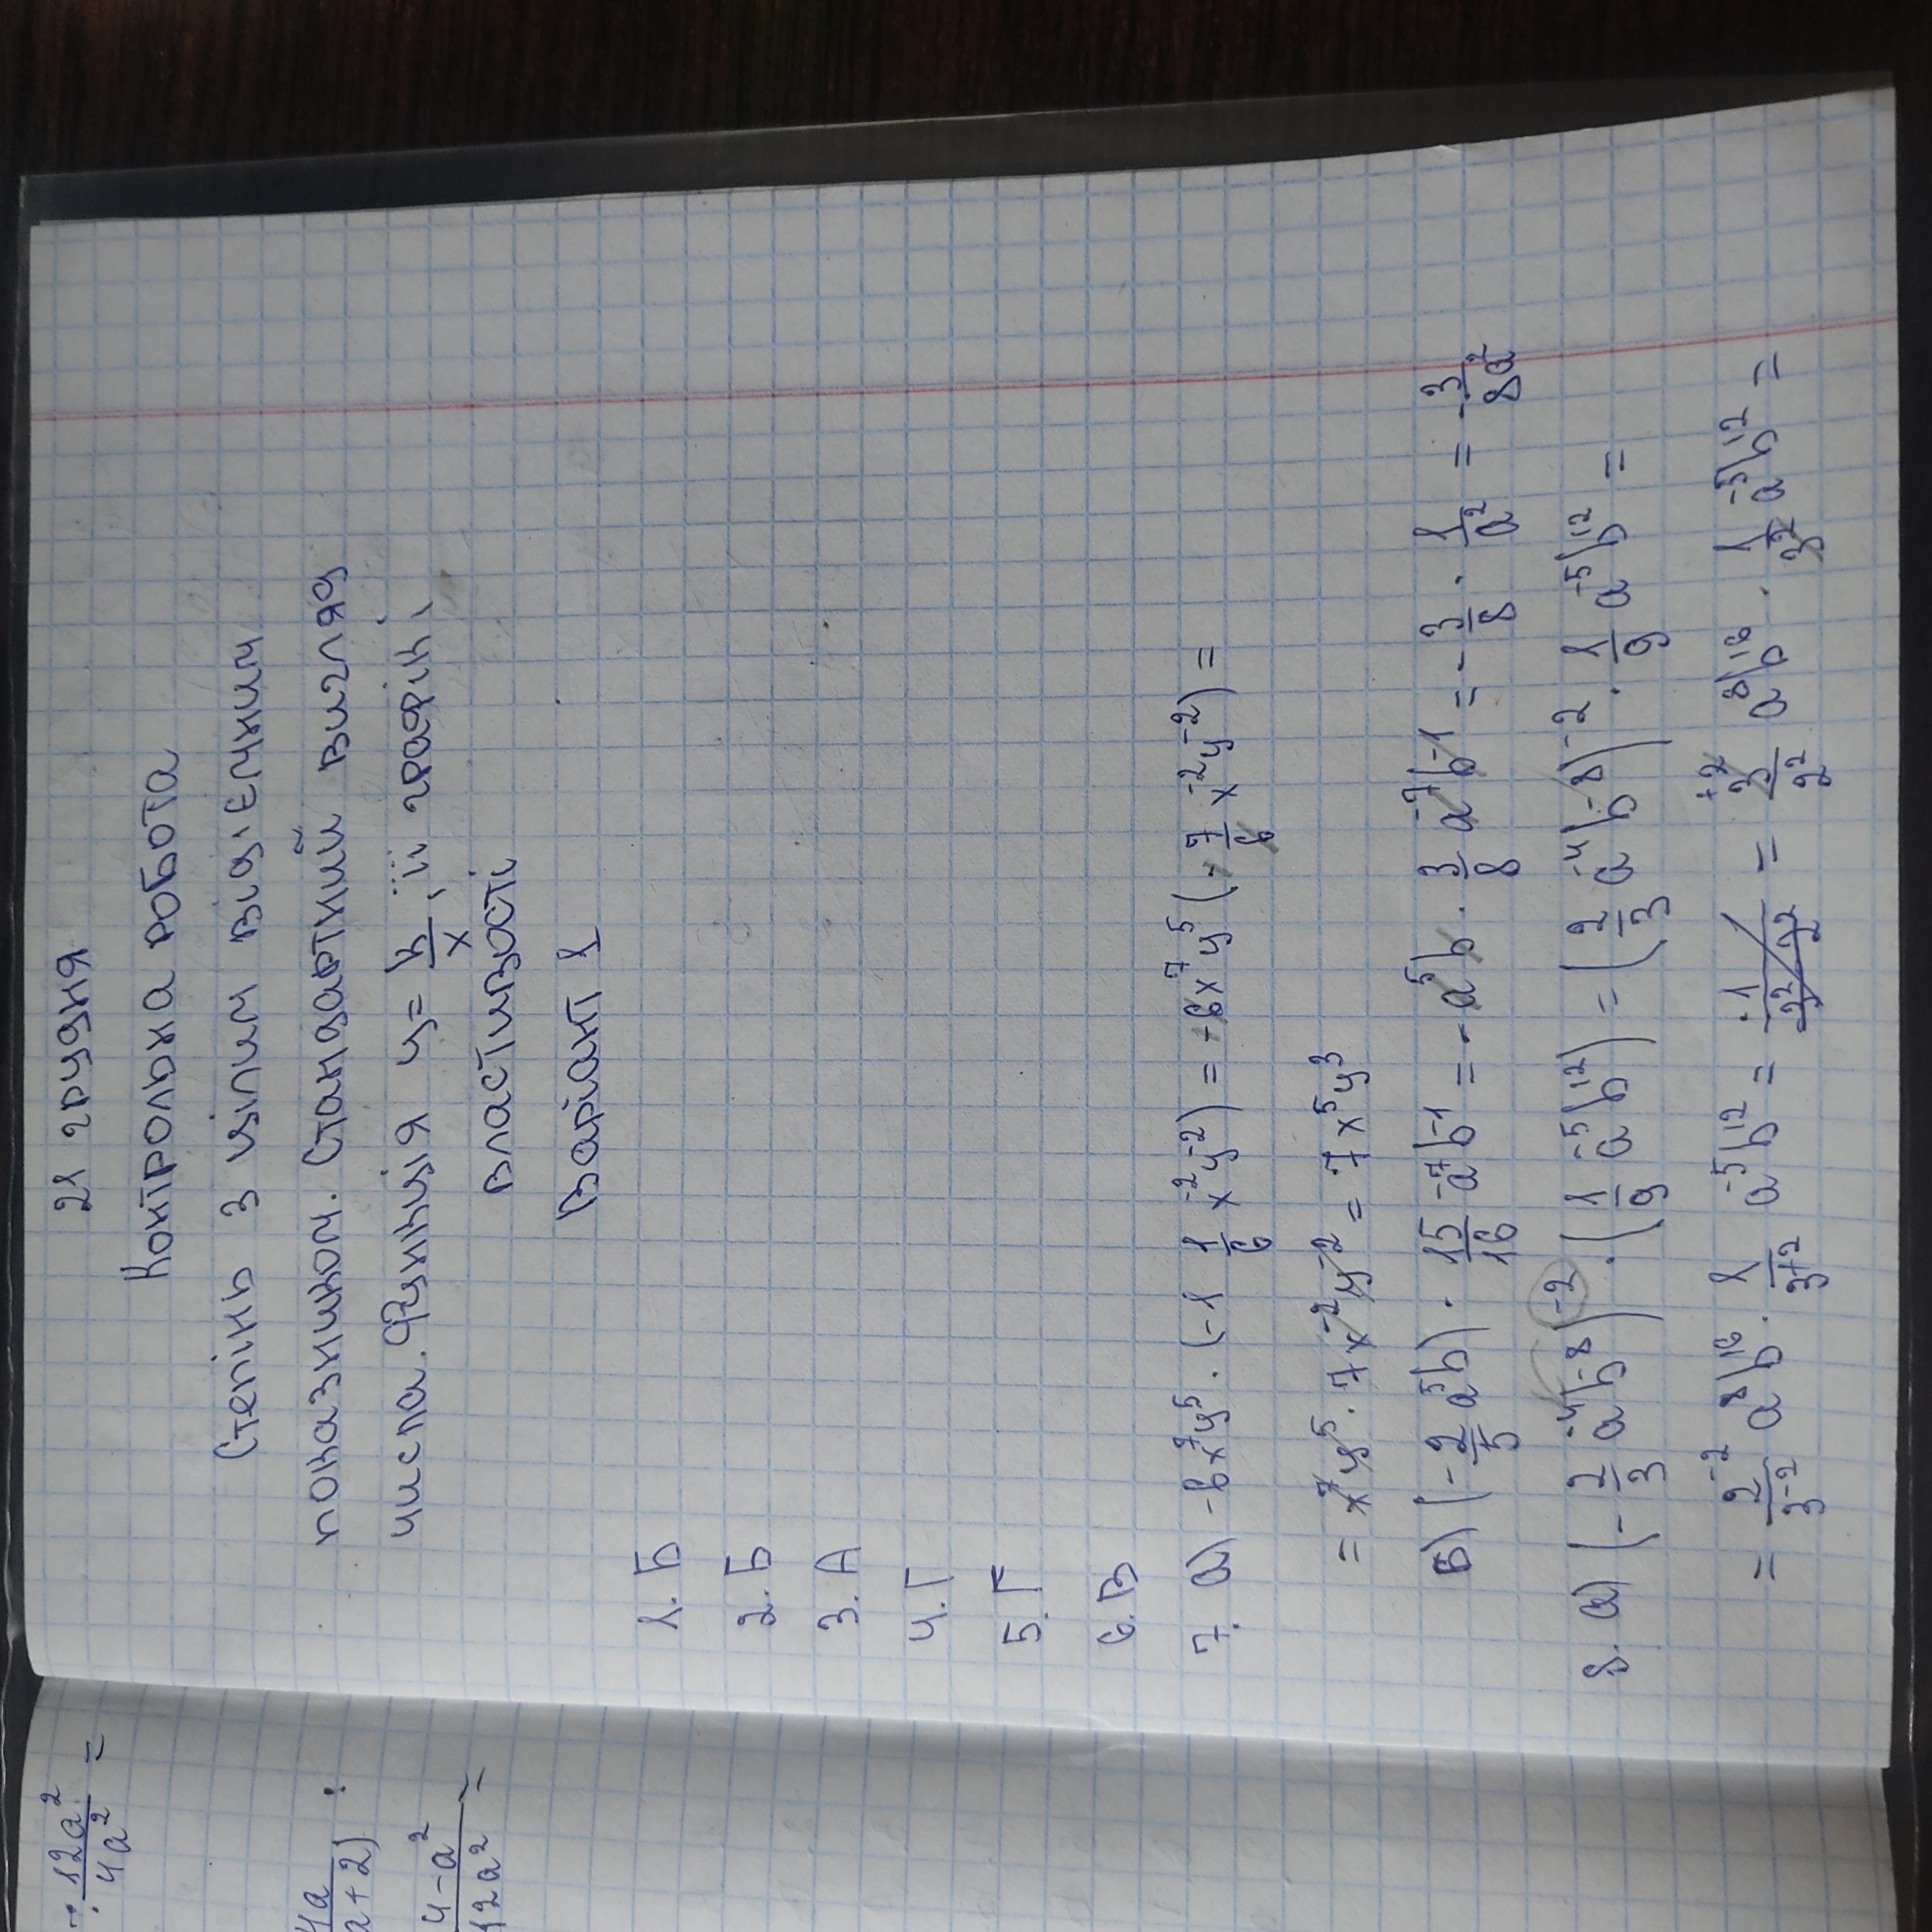 21 грудня
Контрольна робота
Степінь з цілим від,ємним
показником. Стандартний вигляд
числа. Функція y = k/x, її графік і
властивості
Варіант 1
1. Б
2. Б
3. А
4. Г
5. Г
6. В
7. а) -6x⁷y⁵ · (-1 1/6 x⁻²y⁻²) = -6x⁷y⁵ (-7/6 x⁻²y⁻²) =
= x⁷y⁵ · 7x⁻²y⁻² = 7x⁵y³
б) (-2/5 a⁵b) · 15/16 a⁻⁷b⁻¹ = -a⁵b · 3/8 a⁻⁷b⁻¹ = -3/8 · 1/a² = -3/8a²
8. а) (-2/3 a⁻⁴b⁻⁸)⁻² · (1/9 a⁻⁵b¹²) = (2/3 a⁻⁴b⁻⁸)⁻² · 1/9 a⁻⁵b¹² =
= 2⁻²/3⁻² a⁸b¹⁶ · 1/3⁺² a⁻⁵b¹² = = 3⁺²/2² a⁸b¹⁶ · 1/3² a⁻⁵b¹² =
: 12a²/4a² =
4a
a+2) :
4-a²
12a² =